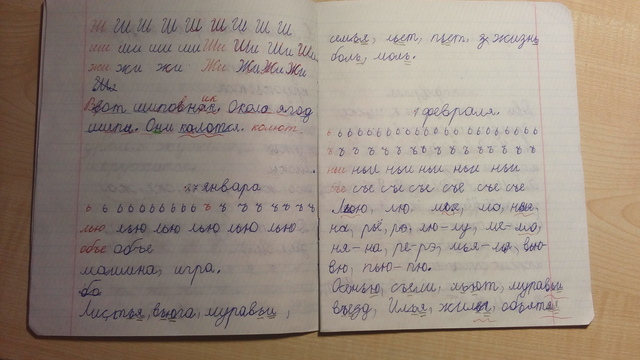 Ш Ш Ш Ш Ш Ш Ш Ш Ш
ши ши ши ши Ши Ши Ши Ши
жи жи жи Жи Жи Жи Жи
Вот шиповник. Окола ягод
шипы. Они колют.
27 января
ь ь ь ь ь ь ь ь ь ъ ъ ъ ъ ъ ъ ъ
лью лью лью лью лью лью
объе объе
машина, игра.
ба
Листья, вьюга, муравьи,
семья, льет, пьет, з. жизнь
боль, моль.
1 февраля.
ь ь ь ь ь ь ь ь ь ь ь ь ь ь ь ь ь ь ь
ъ ъ ъ ъ ъ ъ ъ ъ ъ ъ ъ ъ ъ
ньи ньи ньи ньи ньи ньи
съе съе съе съе съе съе
лю,
на, рьё, рё, лю-лу, ме-мо,
ня-на, ре-рэ, вью-
вю, пью-пю.
Осенью, съели, льют, муравьи
въезд, Илья, объятья